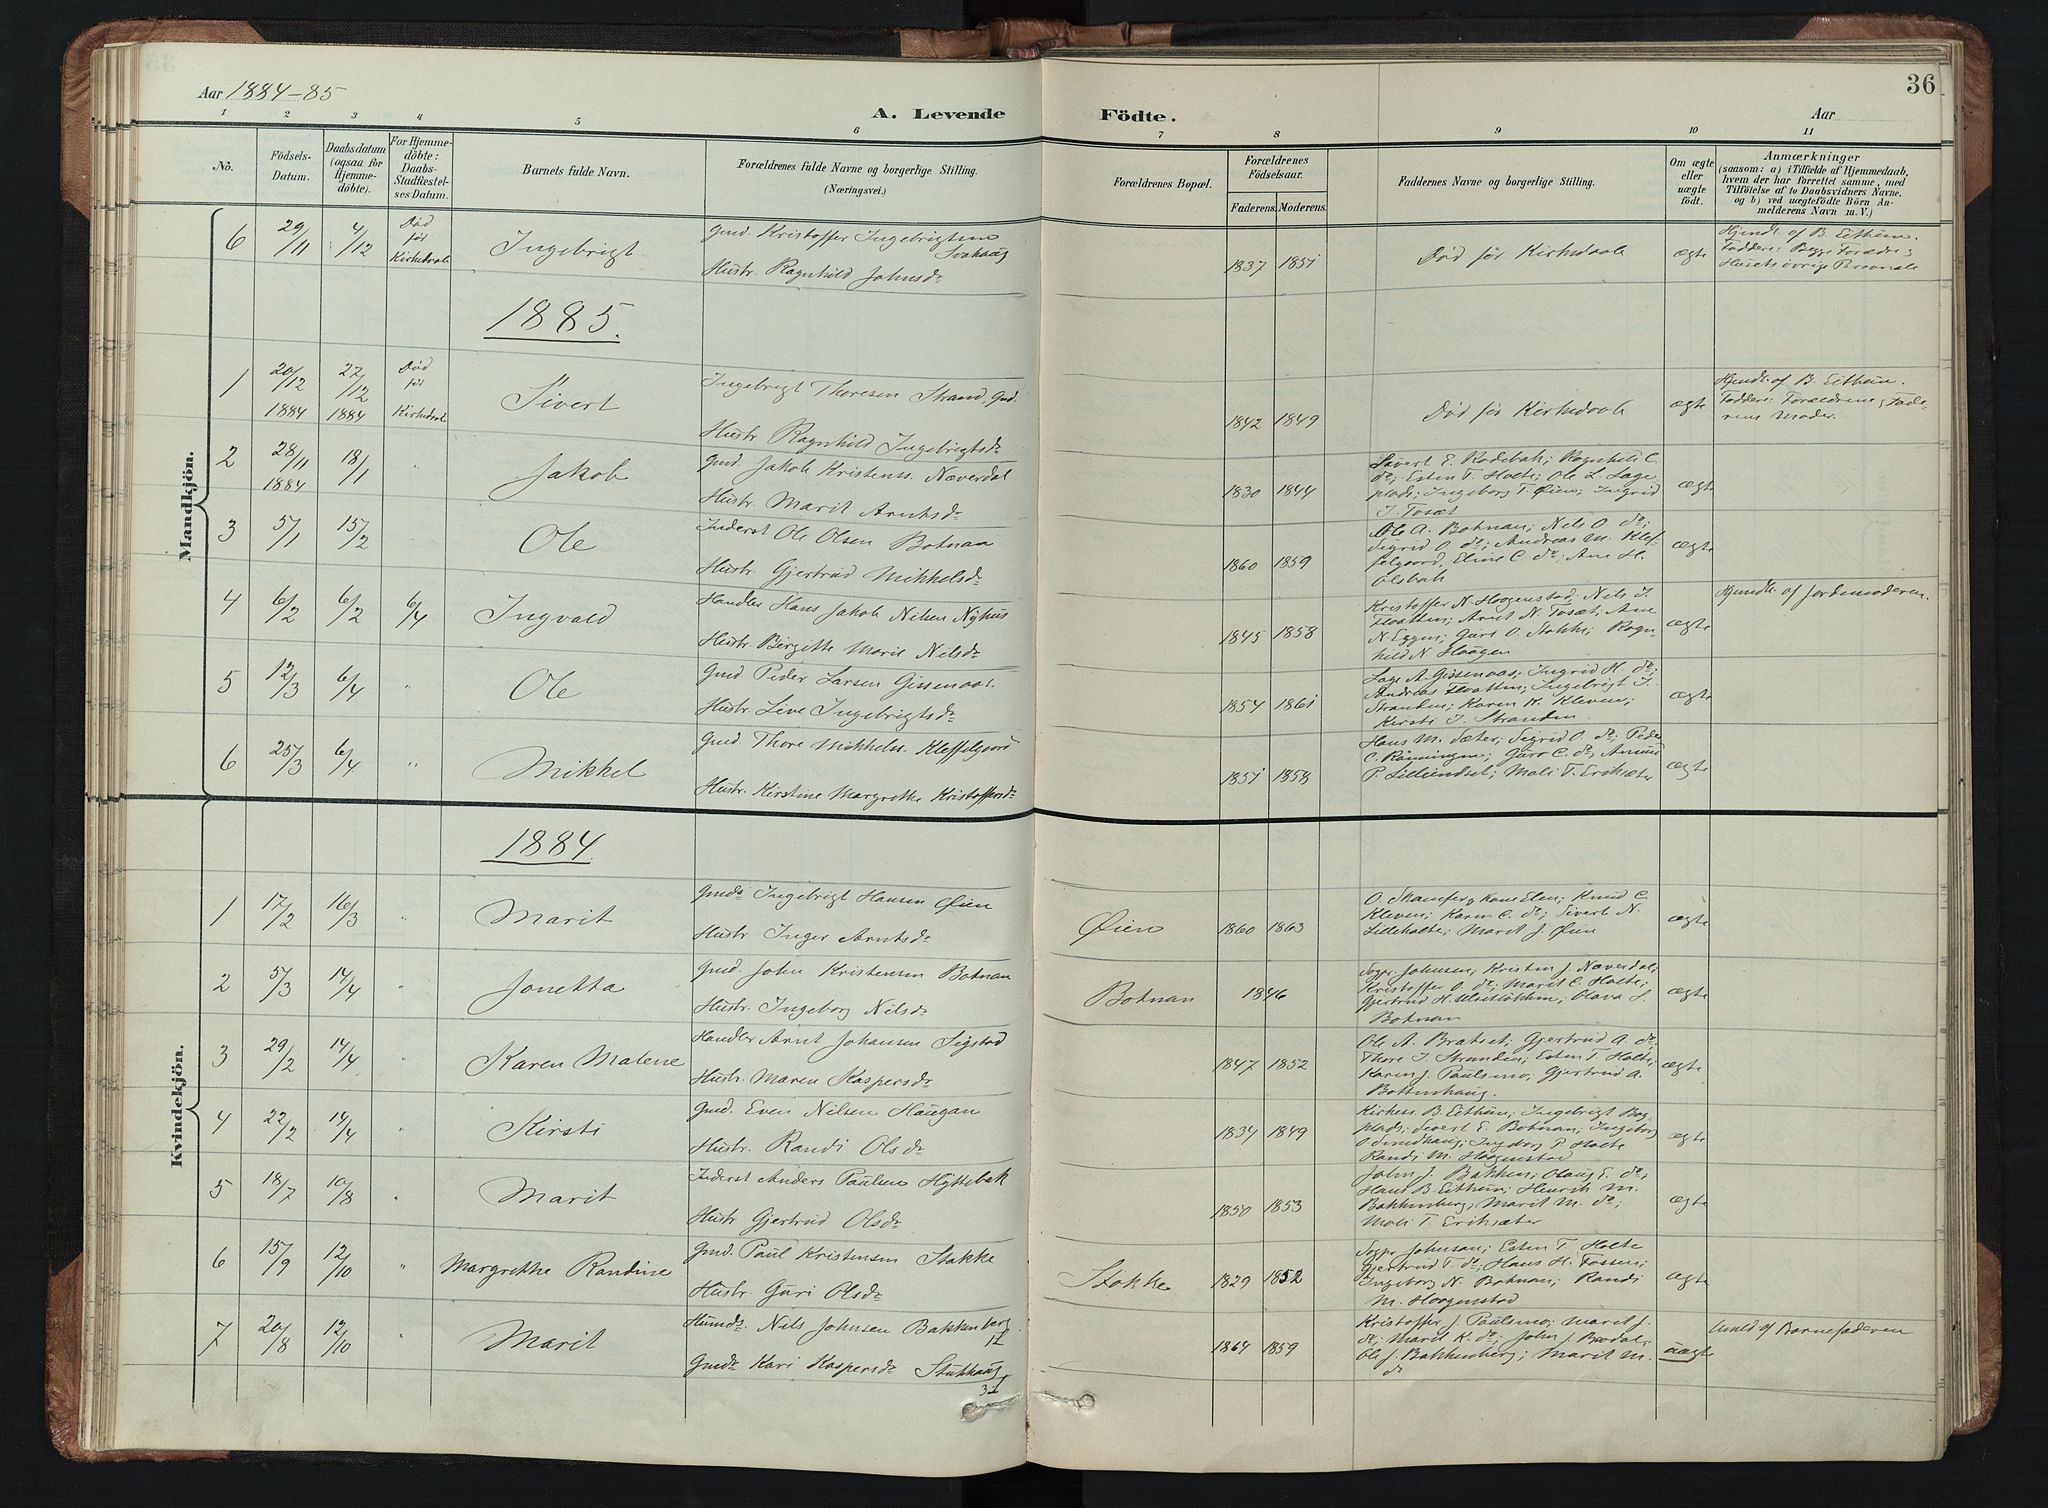 36
Aar 1884-85
A. Levende Födte.
Aar
1 2 3 4 5 6 7 8 9 10 11
No.
Födsels-Datum.
Daabsdatum (ogsaa for Hjemmedöbte).
For Hjemmedöbte: Daabs-Stadfæstelses Datum.
Barnets fulde Navn.
Forældrenes fulde Navne og borgerlige Stilling.
(Næringsvei.)
Forældrenes Bopæl.
Forældrenes Födselsaar.
Faderens. Moderens.
Faddernes Navne og borgerlige Stilling.
Om ægte eller uægte födt.
Anmærkninger
(saasom: a) i Tilfælde af Hjemmedaab, hvem der har forrettet samme, med Tilföielse af to Daabsvidners Navne. og b) ved uægtefödte Börn Anmelderens Navn m. V.)
Mandkjön.
6 29/11 4/12 Död før Kirkedaab Ingebrigt Gmd. Kristoffer Ingebrigtsen Svahaug
Hustr. Ragnhild Johnsdr. 1837 1851 Død før Kirkedaab ægte Hjemdt. af B. Eithun. Faddere: Begge Forældre; Husets øvrige Personale
1885.
1 20/12 1884 22/12 1884 Død før Kirkedaab Sivert Ingebrigt Thoresen Strand, Gmd.
Hustr. Ragnhild Ingebrigtsdr. 1842 1849 Død før Kirkedaab ægte Hjemdt. af B. Eithun. Faddere: Forældrene, Faderens Moder.
2 28/11 1884 18/1 " Jakob Gmd. Jakob Kristenss. Næverdal
Hustr. Marit Arntsdr. 1830 1844 Sivert E. Rødebak; Ragnhild C. dr; Esten T. Holte; Ole L. Lageplads; Ingeborg T. Øien; Ingrid J. Tosæt ægte
3 5/1 15/2 Ole Inderst Ole Olsen Botnan
Hustr. Gjertrud Mikkelsdr. 1860 1859 Ole A. Botnan; Nils O. do; Sigrid O. do; Andreas M. Kleffelgaard, Eline C. do; Ane H. Olsbak ægte
4 6/2 6/2 6/4 Ingvald Handler Hans Jakob Nilsen Nyhus
Hustr. Birgitte Marie Nilsdr. 1845 1858 Kristoffer N. Haagenstad; Nils J. Floatten; Arnt N. Tosæt; Ane N. Eggen; Guro O. Stokke; Ragnhild N. Haugen ægte Hjemdt. af Jordemoderen.
5 12/3 6/4 " Ole Gmd Peder Larsen Gissenaas.
Hustr. Live Ingebrigtsdr. 1854 1861 Lage A. Gissenaas; Ingrid H. do; Andreas Floatten; Ingebrigt J. Stranden; Karen K. Kleven; Kirsti J. Stranden ægte
6 25/3 6/4 " Mikkel Gmd Thore Mikkels. Kleffelgaard
Hustr. Kirstine Margrethe Kristoffersdr. 1851 1858 Hans M. Sæter; Sigrid O. do; Peder C. Rønningen; Guro C. do; Amund P. Lilliendset; Mali T. Eriksæter ægte
Kvindekjön.
1884.
1 17/2 16/3 " Marit Gmds. Ingebrigt Hansen Øien
Hustr Inger Arntsdr. Øien 1860 1863 Knud C. Kleven; Karen C. do; Sivert N. Lilleholte; Marit J. Øien ægte
2 5/3 14/4 " Jonetta Gmd. John Kristensen Botnan
Hustr. Ingeborg Nilsdr. Botnan 1846 Sogpr. Johnsen; Kristen J. Næverdal; Kristoffer O. do; Marit C. Holte; Olava S. Botnan ægte
3 29/2 14/4 " Karen Malene Handler Arnt Johansen Sigstad
Hustr. Maren Kaspersdr. 1847 1852 Ole A. Bratset; Gjertrud A. do; Thore J. Stranden; Esten T. Holte; Karen J. Paulsmo; Gjertrud A. Bottenhaug. ægte
4 22/2 14/4 " Kirsti Gmd. Even Nilsen Haugan
Hustr. Randi Olsdr. 1834 1849 Kirkes. B. Eithun; Ingebrigt Bogplads; Sivert E. Botnan; Ingeborg O. Svedhaug; Ingeborg P. Holte Randi M. Haagenstad ægte
5 18/7 10/8 " Marit Inderst Anders Paulsen Hyttebak
Hustr Gjertrud Olsdr. 1850 1853 John J. Bakken; Olaug E. do; Hans B. Eithun; Henrik M. Bakkenberg; Marit M. do; Mali T. Eriksæter ægte
6 15/9 12/10 " Margrethe Randine Gmd. Paul Kristensen Stokke
Hustr Guri Olsdr. Stokke 1829 1852 Sogpr Johnsen; Esten T. Holte Gjertrud T. do; Hans H. Fossen; Ingeborg N. Botnan; Randi M. Haagenstad ægte
7 20/8 12/10 " Marit Husmds. Nils Johnsen Bakkenberg 1f
Gmdr. Kari Kaspersdr. Stukhaug 3f 1864 1859 Kristoffer J. Paulsmo; Marit J. do; Marit K. do; John J. Bredal; Ole J. Bakkenberg; Marit M. do uægte Anmeld af Barnefaderen